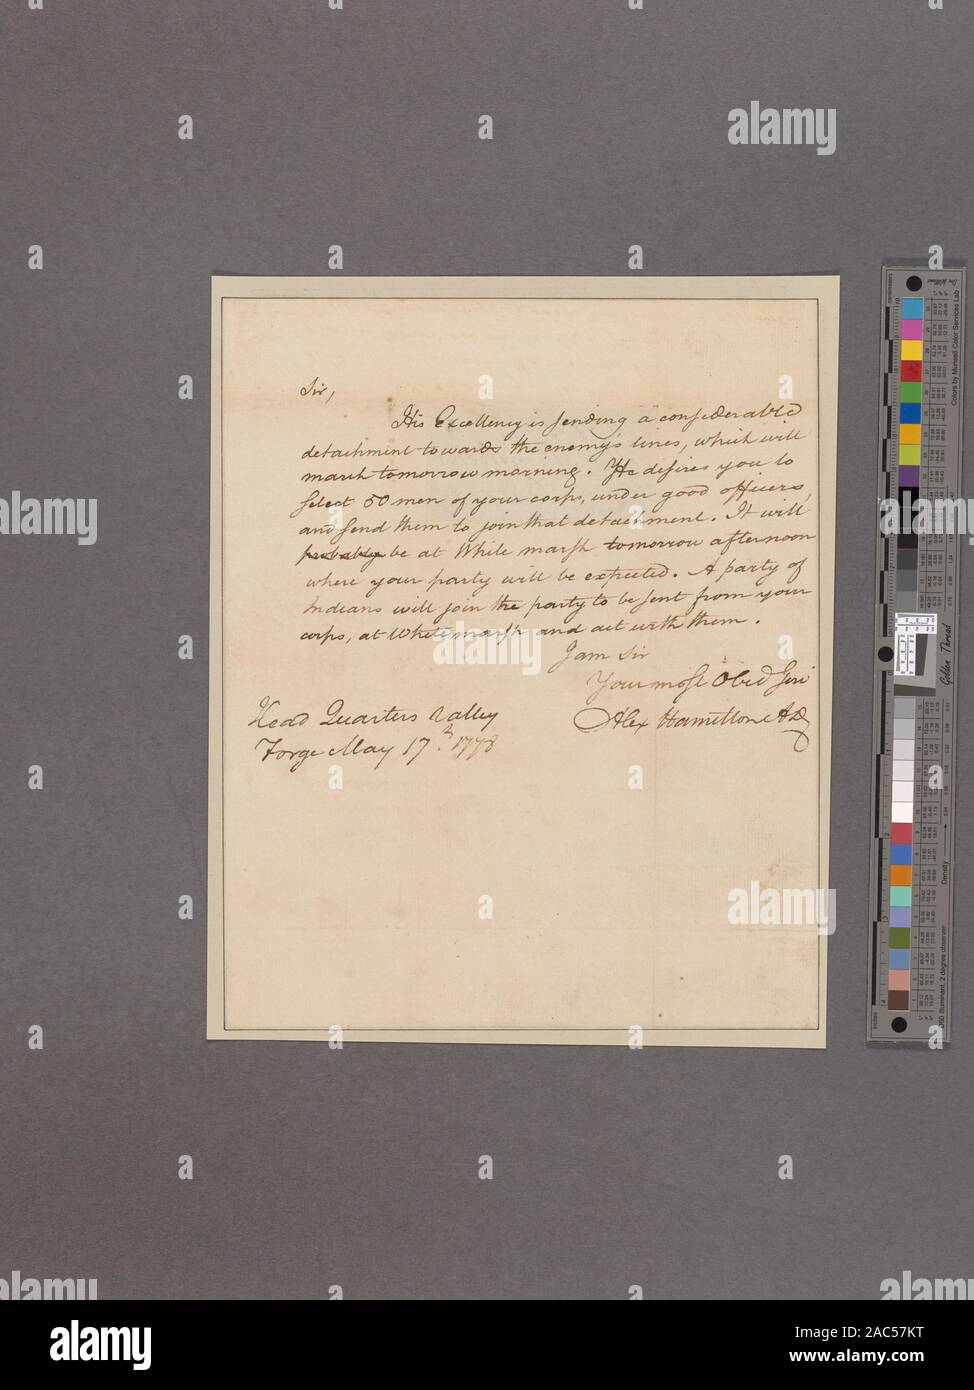 Sir,
His Excellency is sending a considerable
detachment towards the enemys lines, which will
march tomorrow morning. He desires you to
select 50 men of your corps, under good officers,
and send them to join that detachment. It will
probably be at White marsh tomorrow afternoon
where your party will be expected. A party of
Indians will join the party to be sent from your
corps, at White marsh and act with them.
I am Sir
Your most Obed Serv
Alex Hamilton ADC
Head Quarters Valley
Forge May 17th. 1778
Colors by Munsell Color Services Lab
centimeters
Golden Thread
Density
D50 Illuminant, 2 degree observer
inches
alamy
Image ID: 2AC57KT
www.alamy.com